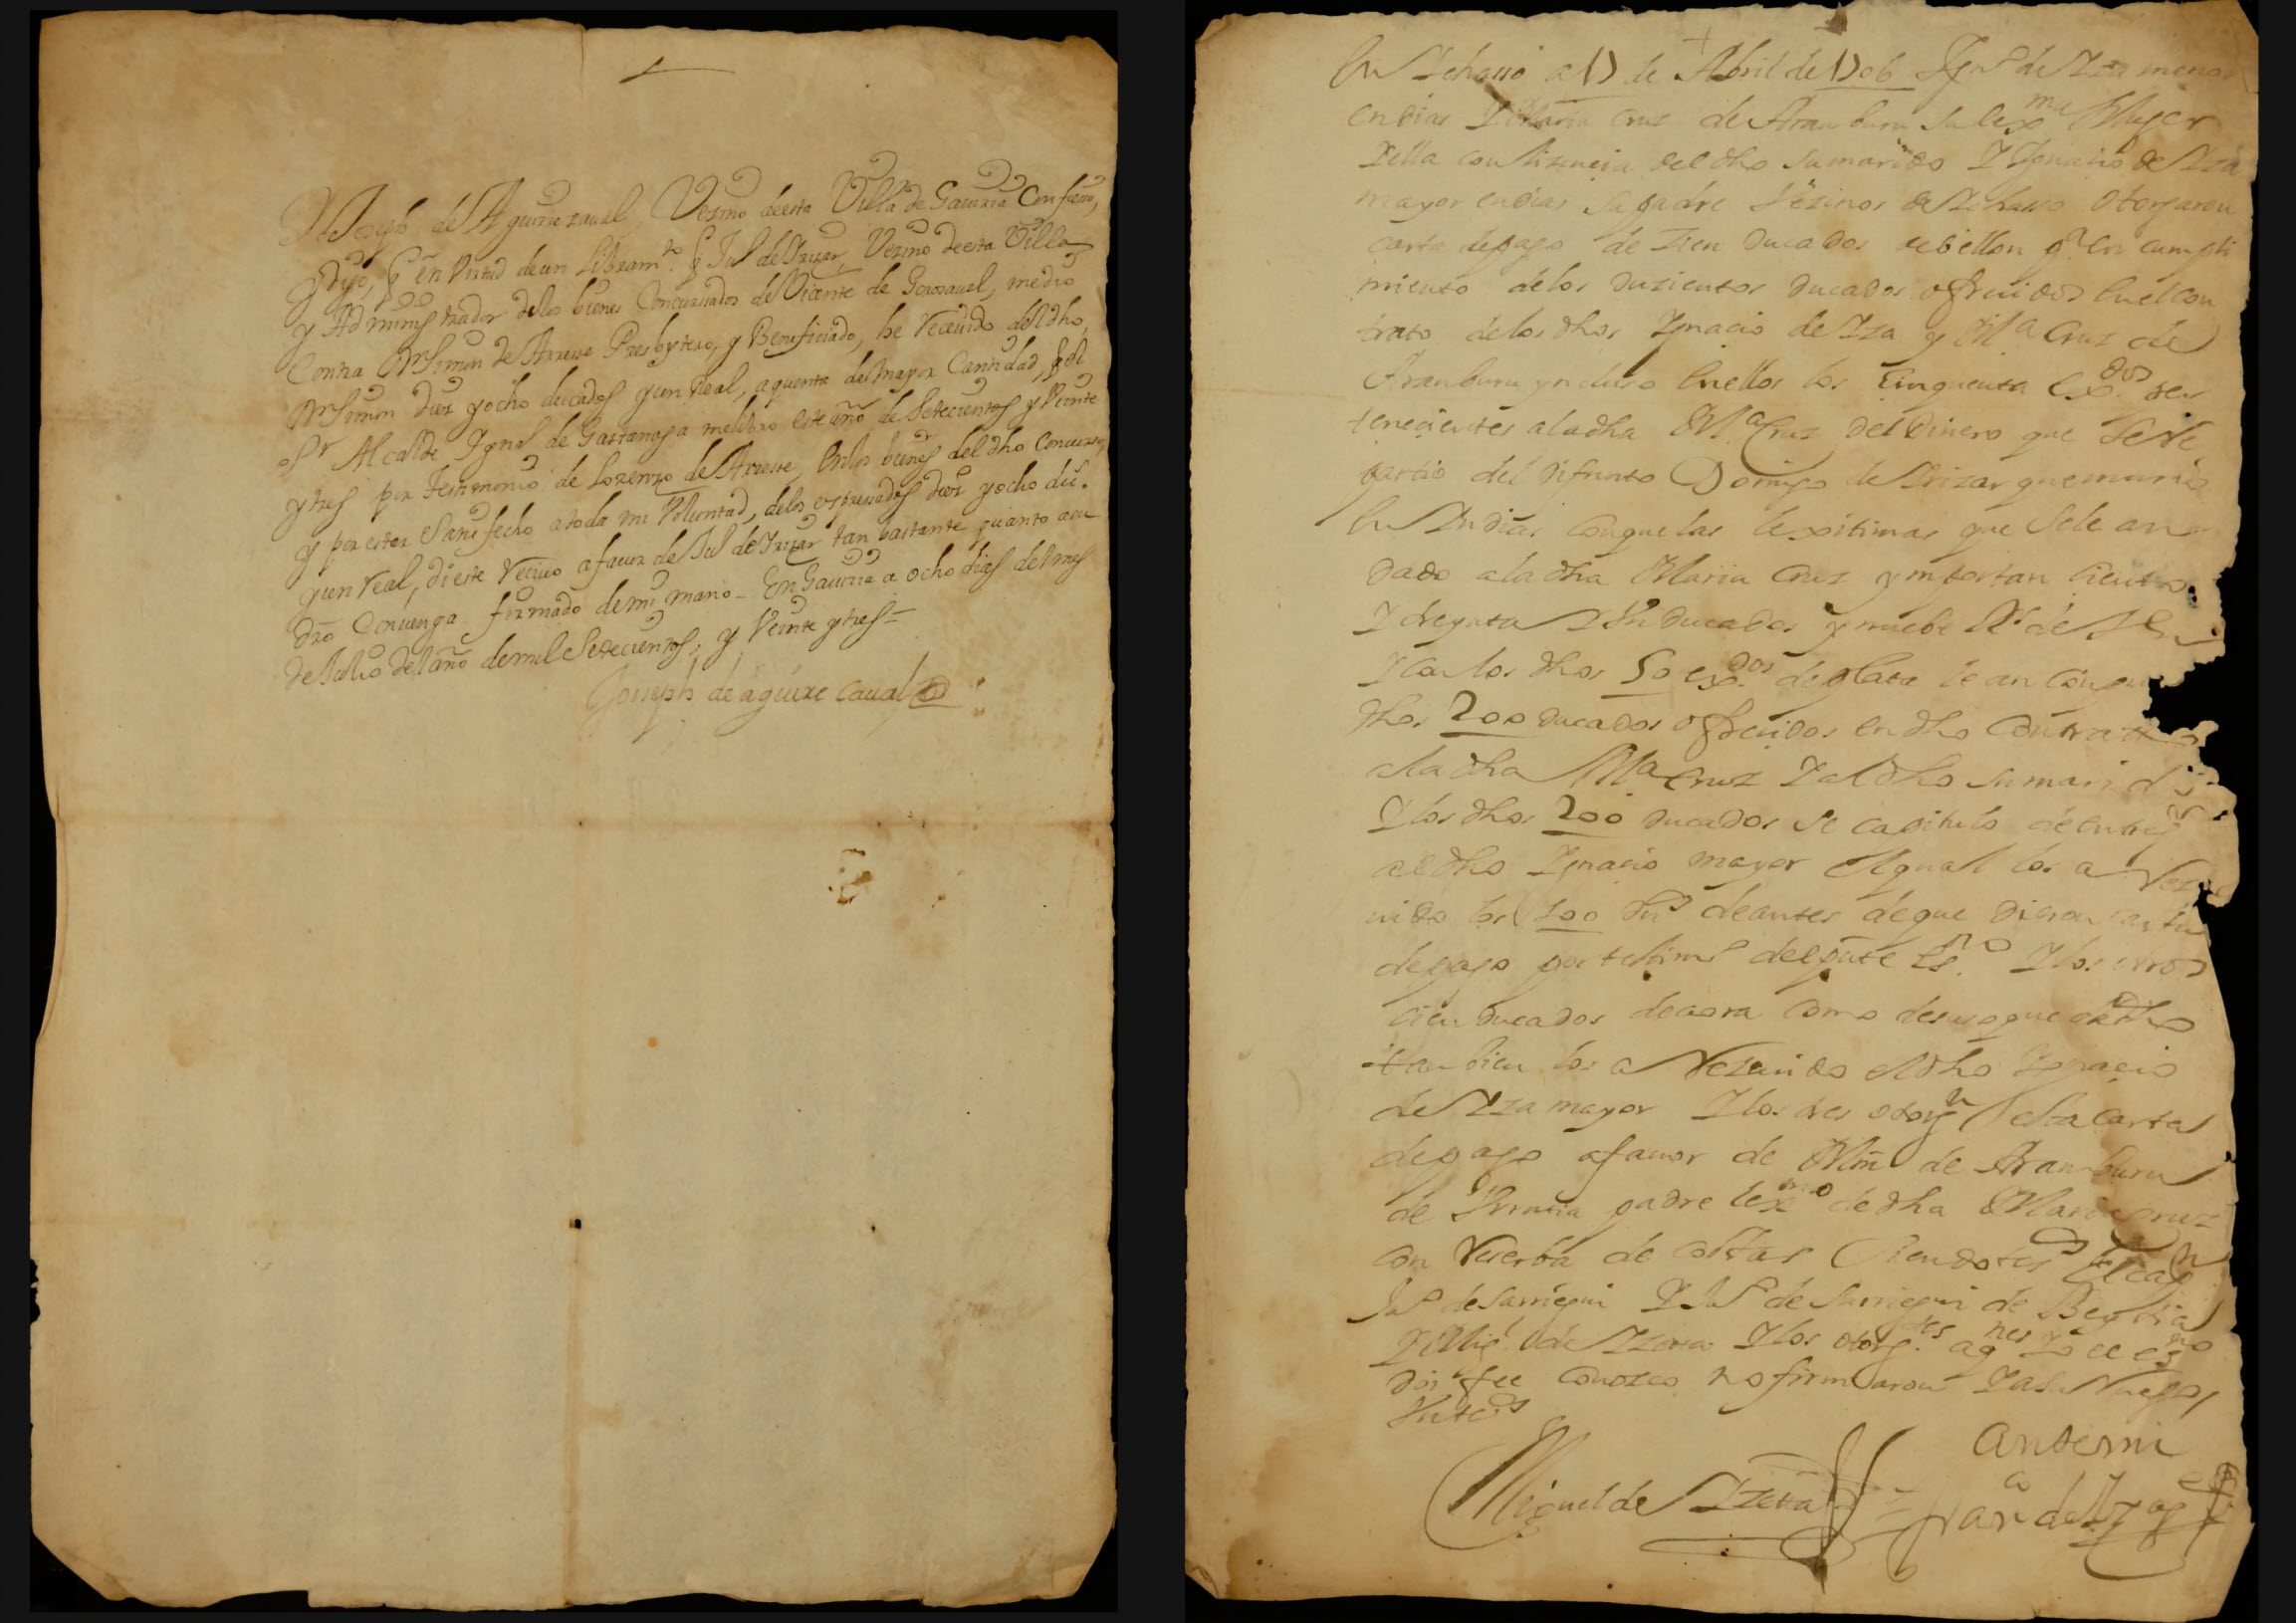 Joseph de Aguirrezaual, Vezino de esta Villa de Gauiria Confieso,
y digo, q̃ en virtud de un Libram.to q̃ Jul de Irizar, Vezino de esta Villa
y Administrador de los bienes Concursados de Vicente de Gorosauel, medio
Contra Dn Simon de Arrese Presbytero, y Beneficiado, he receuido del dho
Dn Simon diez y ocho ducados y un Real, a quenta de mayor Cantidad, q̃ el
Sr Alcalde Ignaº de Gastanaga me libro este año de Setecientos y Veinte
y tres por testimonio de Lorenzo de Arrese, en los bienes del dho Concurso,
y por estar Satisfecho a toda mi Voluntad, de los expresados diez y ocho du.
y un Real, di este Reciuo a fauor de Jul de Irizar tan bastante quanto a su
dro Conuenga firmado de mi mano - En Gauiria a ocho dias del mes
de Julio del año de mil Setecientos, y Veinte y tres =
Joseph de aguirre çaual
+
En Ichasso a 17 de Abril de 1706 Ignº de Iza menor
en dias Y Maria Cruz de Aranburu su lexma Muger
Y ella con lizencia del dho su marido Y Ignacio de Iza
mayor en dias su padre Vezinos de Ichasso otorgaron
carta de pago de zien ducados de bellon q en cumpli
miento de los duzientos ducados ofrecidos en el con
trato de los dhos Ignacio de Iza y Mª Cruz de
Aranburu yncluso en ellos los cinquenta exdos per
tenecientes a la dha Mª Cruz del Dinero que se Re
partio del difunto Domingo de Irizar que murio
en Yndias con que las lexitimas que se le an
dado a la dha Maria Cruz ymportan ciento
Y treynta Y Un ducados y nuebe Rs de
Y con los dhos 50 exdos de plata
dhos 200 ducados ofrecidos en dho Contratto
a la dha Mª Cruz Y al dho su marido
Y los dhos 200 ducados se capitulo de entreg
al dho Ignacio mayor el qual los a Reze
uido los 100 dus de antes de que dieron carta
de pago por testimº del pnte esno Y los otros
cien ducados de aora como
tanbien los a Rezeuido el dho Ignacio
de Iza mayor Y los tres otorgn esta carta
de pago a fauor de Mrn de Aranburu
de padre lexmo de dha Maria Cruz
con Reserba de costas siendo tes el capn
Juº de Sarriegui Y Juº de Sarriegui de
Y Migl de Izetta Y los otorgtes a qnes Yo el esno
doy fee conozco no firmaron Y a su Ruego
Un tesº
Antemi
Miguel de Izetta Franco de